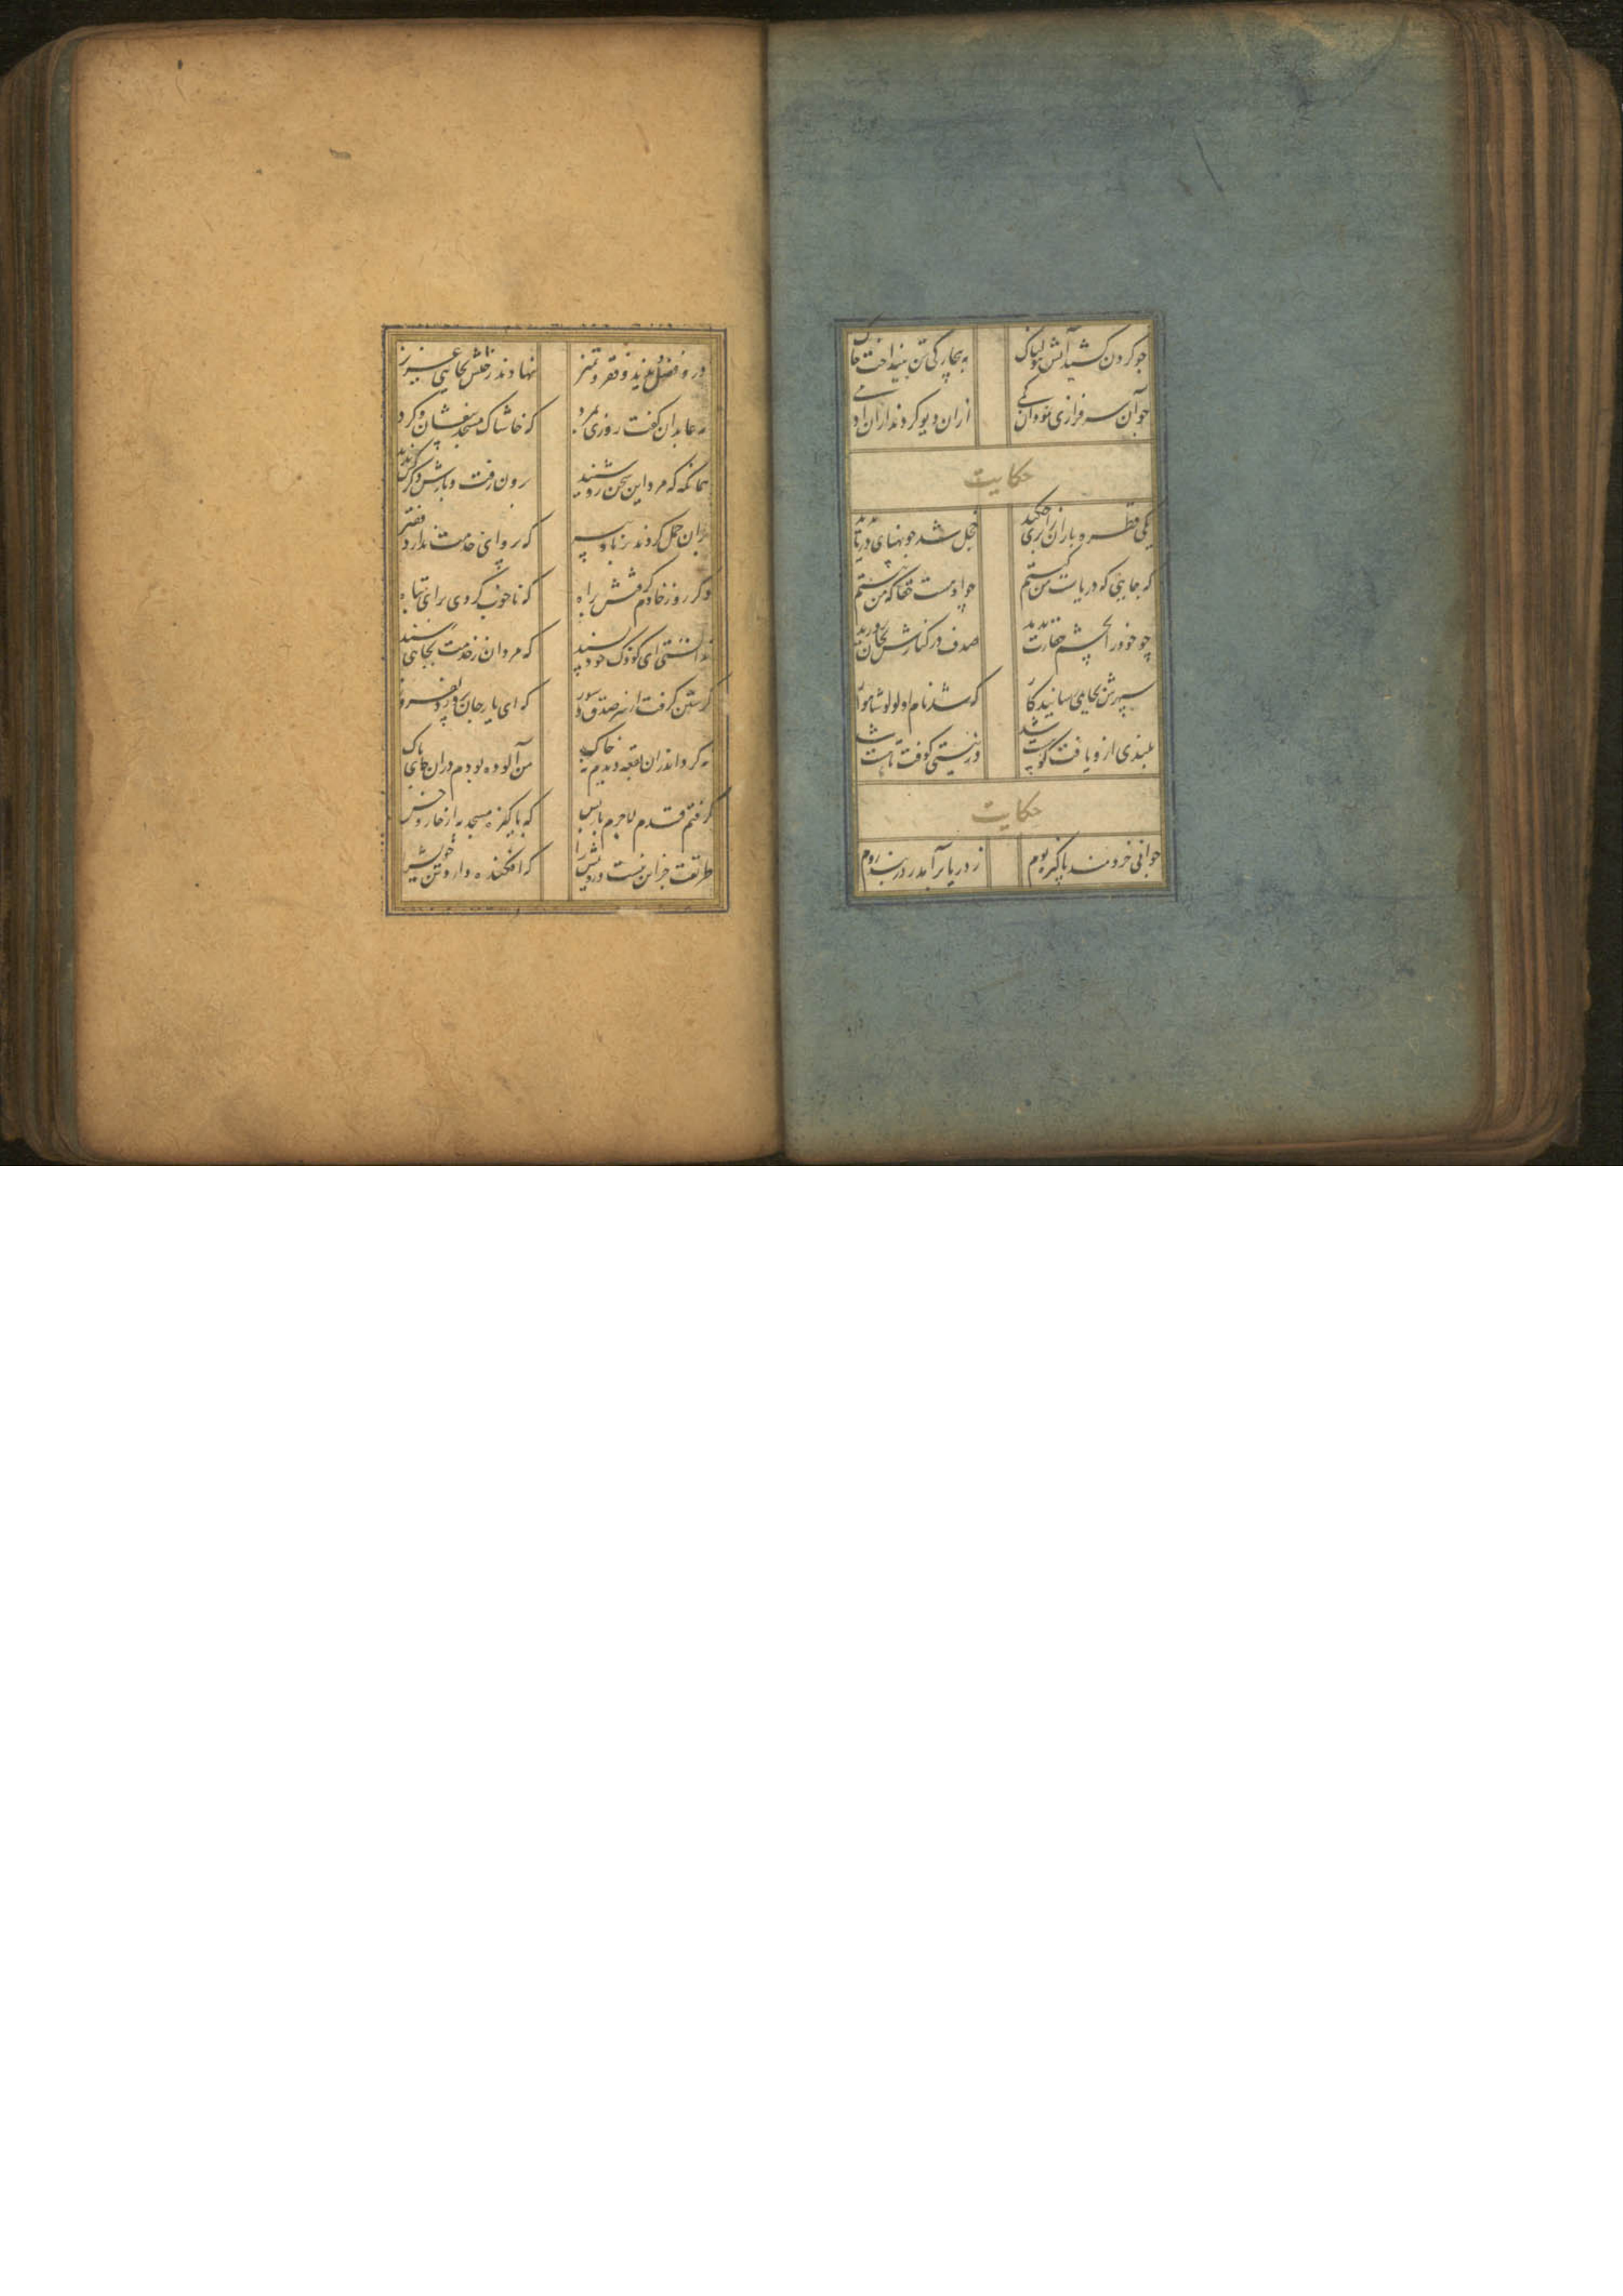 چو گردن کشید آتش هولناک به بیچارگی تن بینداخت خاک
چو آن سرفرازی نمود این کمی ازان دیو کردند ازین آدمی
حکایت
یکی قطره باران ز ابری چکید خجل شد چو پهنای دریا بدید
که جایی که دریاست من کیستم گر او هست حقا که من نیستم
چو خود را بچشم حقارت بدید صدف در کنارش بجان پرورید
سپهرش بجایی رسانید کار که شد نامور لولو شاهوار
بلندی ازو یافت کو پست شد در نیستی کوفت تا هست شد
حکایت
جوانی خردمند پاکیزه بوم ز دریا برآمد بدربند روم
درو فضل دیدند و فقر و تمیز نهادند رختش بجایی عزیز
مه عابدان گفت روزی بمرد که خاشاک مسجد بیفشان و گرد
همانکه که مرد این سخن زو شنید برون رفت و بازش دگر کس ندید
بران حمل کردند برنا و پیر که پروای خدمت ندارد فقیر
دگر روز خادم گرفتش براه که ناخوب کردی برای تباه
ندانستی ای کودک خودپسند که مردان ز خدمت بجایی رسند
گرستن گرفت از سر صدق و سوز که ای یار جان پرور دلفروز
نه گرد اندران بقعه دیدم نه خاک من آلوده بودم دران جای پاک
گرفتم قدم لاجرم باز پس که پاکیزه مسجد به از خار و خس
طریقت جز این نیست درویش را که افکنده دارد تن خویش را